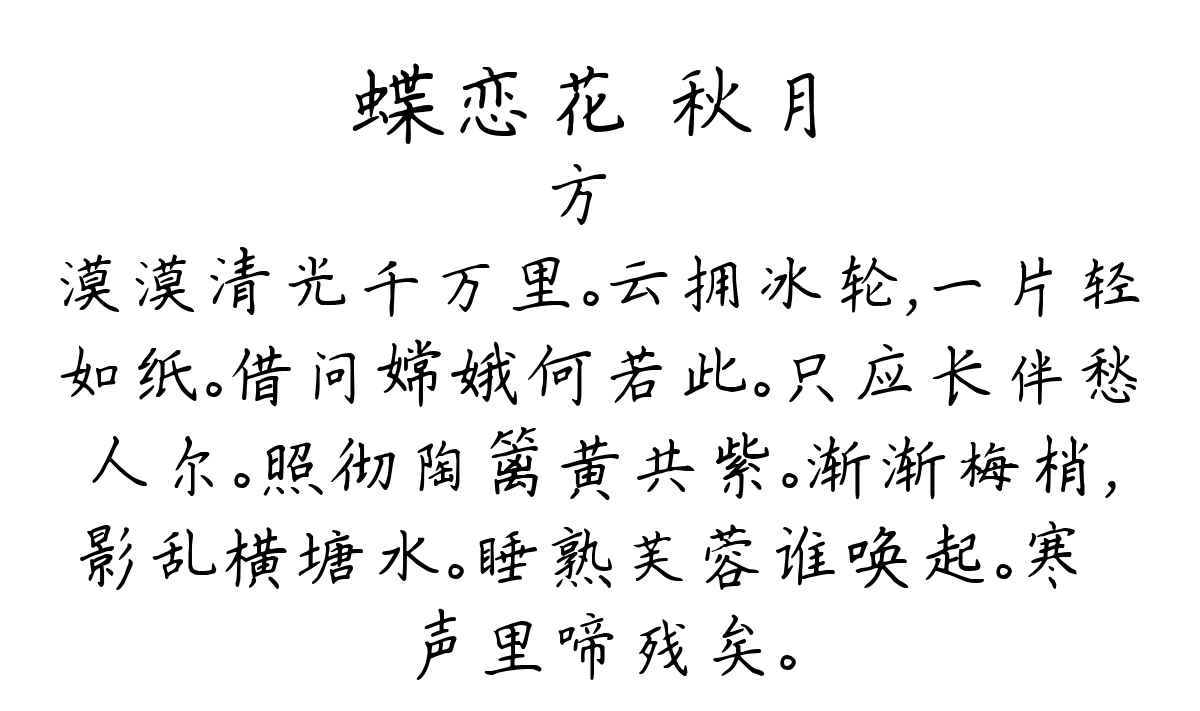 蝶恋花 秋月
方
漠漠清光千万里。云拥冰轮,一片轻
如纸。借问嫦娥何若此。只应长伴愁
人尔。照彻陶篱黄共紫。渐渐梅梢,
影乱横塘水。睡熟芙蓉谁唤起。寒
声里啼残矣。